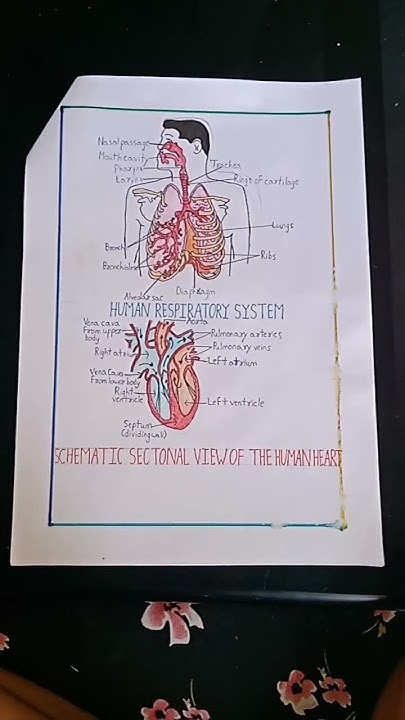 Nasal passage
Mouth cavity
Pharynx
Larynx
Trachea
Rings of cartilage
Lungs
Bronchi
Bronchioles
Ribs
Diaphragm
Alveolar sac
HUMAN RESPIRATORY SYSTEM
Vena cava
From upper
body
Aorta
Pulmonary arteries
Pulmonary veins
Right atrium
Left atrium
Vena Cava
From lower body
Right
ventricle
Left ventricle
Septum
(dividing wall)
SCHEMATIC SECTONAL VIEW OF THE HUMAN HEART